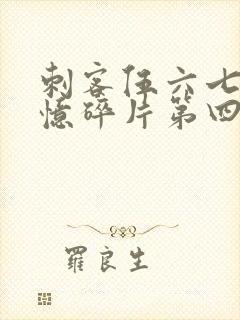 刺客伍六七
憶碎片第四
羅良生